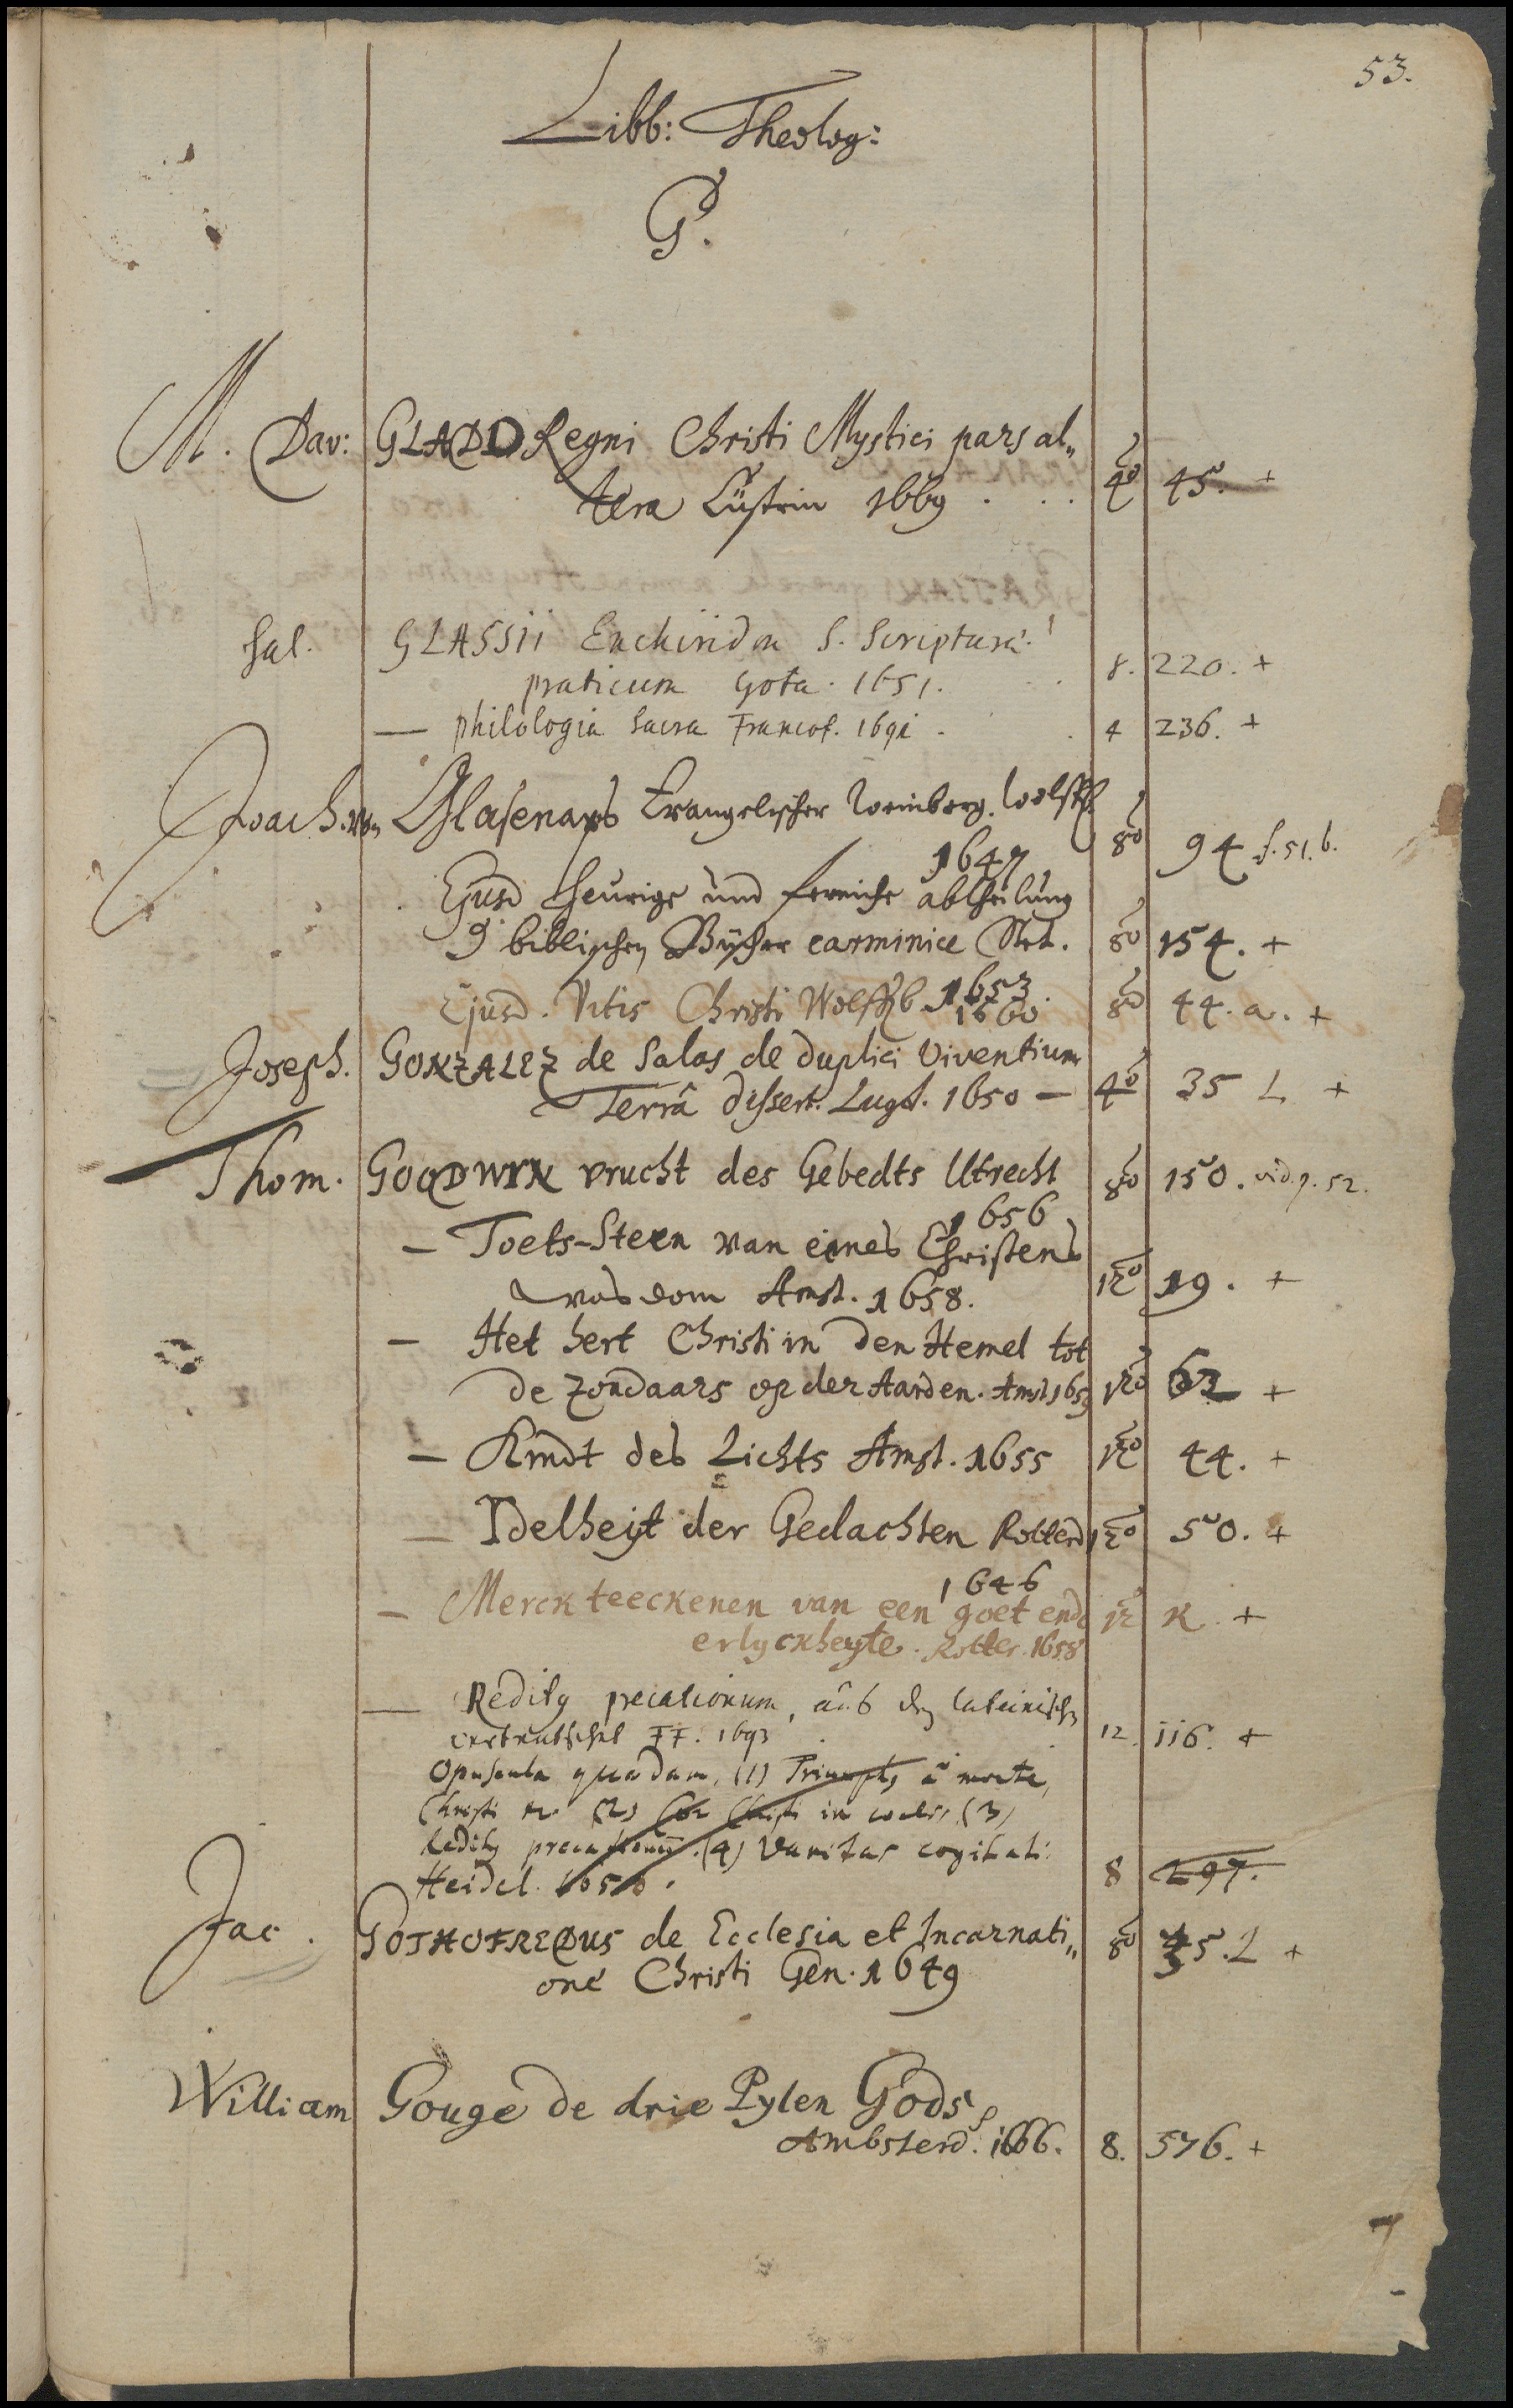 53.
Libb: Theolog:
G.
M. Dav: GLADD Regni Christi Mystici pars al„ 4o 45. +
tera Cüstrin 1669 . . .
Sal. GLASSII Enchiridon S. Scripturae
praticum Gota. 1651. 8. 220. +
— philologia Sacra Francof. 1691 . 4 236. +
Joach. von Glasenaps Evangelischer Weinberg. Wolffb. 8o 94 f. 51. b.
1647
Ejusd und abtheilung
d biblischen Bücher carminice Stet. 8o 154. +
1653
Ejusd. Vitis Christi Wolffb 1660 8o 44. a. +
Joseph. GONZALEZ de Salas de duplici Viventium
Terrâ dissert. Lugd. 1650 — 4o 35 L +
Thom. GOODWIN vrucht des Gebedts Utrecht 8o 150. vid. p. 52.
1656
— Toets-Steen van eines Christens 12o 19. +
wasdom Amst. 1658.
— Het hert Christi in den Hemel tot
de Zondaars op der Aarden. Amst 1659 12o 62 +
— Kindt des Lichts Amst. 1655 12o 44. +
— Idelheyt der Gedachten Rotterd 12o 50. +
1646
— Merckteeckenen van een goet ende 12 K +
erlyckheyte. Rotter. 1658
— Reditus precationum, aus dem lateinischen
verteutschet FF. 1693 12. 116. +
Opuscula quædam, (1) Triumphus à morte,
Christi &c. (2) Cor Christi in coelis, (3)
Reditus precationum. (4) Vanitas cogitati.
Heidel. 1658. 8 297.
Jac. GOTHOFREDUS de Ecclesia et Incarnati„ 8o 35. L +
one Christi Gen. 1649
William Gouge de drie Pylen Gods,
Ambsterd. 1666. 8. 576. +